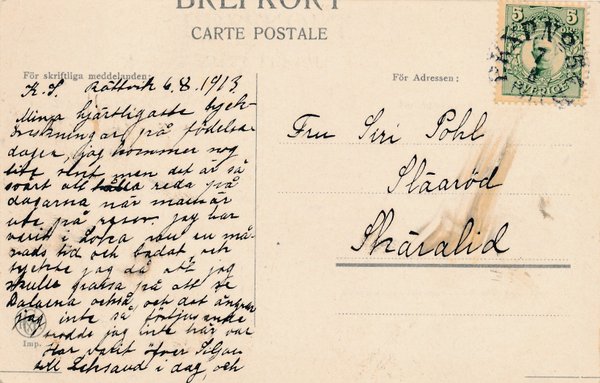 BREFKORT
CARTE POSTALE
För skriftliga meddelanden:
För Adressen:
5 5
SVERIGE
K. S. Rättvik 6.8.1913.
Mina hjärtligaste lyck-
önskningar på födelse-
dagen, jag kommer nog
lite sent men det är så
svårt att hålla reda på
dagarna när man är
ute på resor. Jag har
varit i Loka nu en må-
nads tid och badat och
tyckte jag då att jag
skulle passa på att se
Dalarna också, och det ångrar
jag inte så förtjusande
trodde jag inte här var
Har varit öfver Siljan
till Leksand i dag, och
Imp.
Fru Siri Pohl
Släaröd
Skäralid